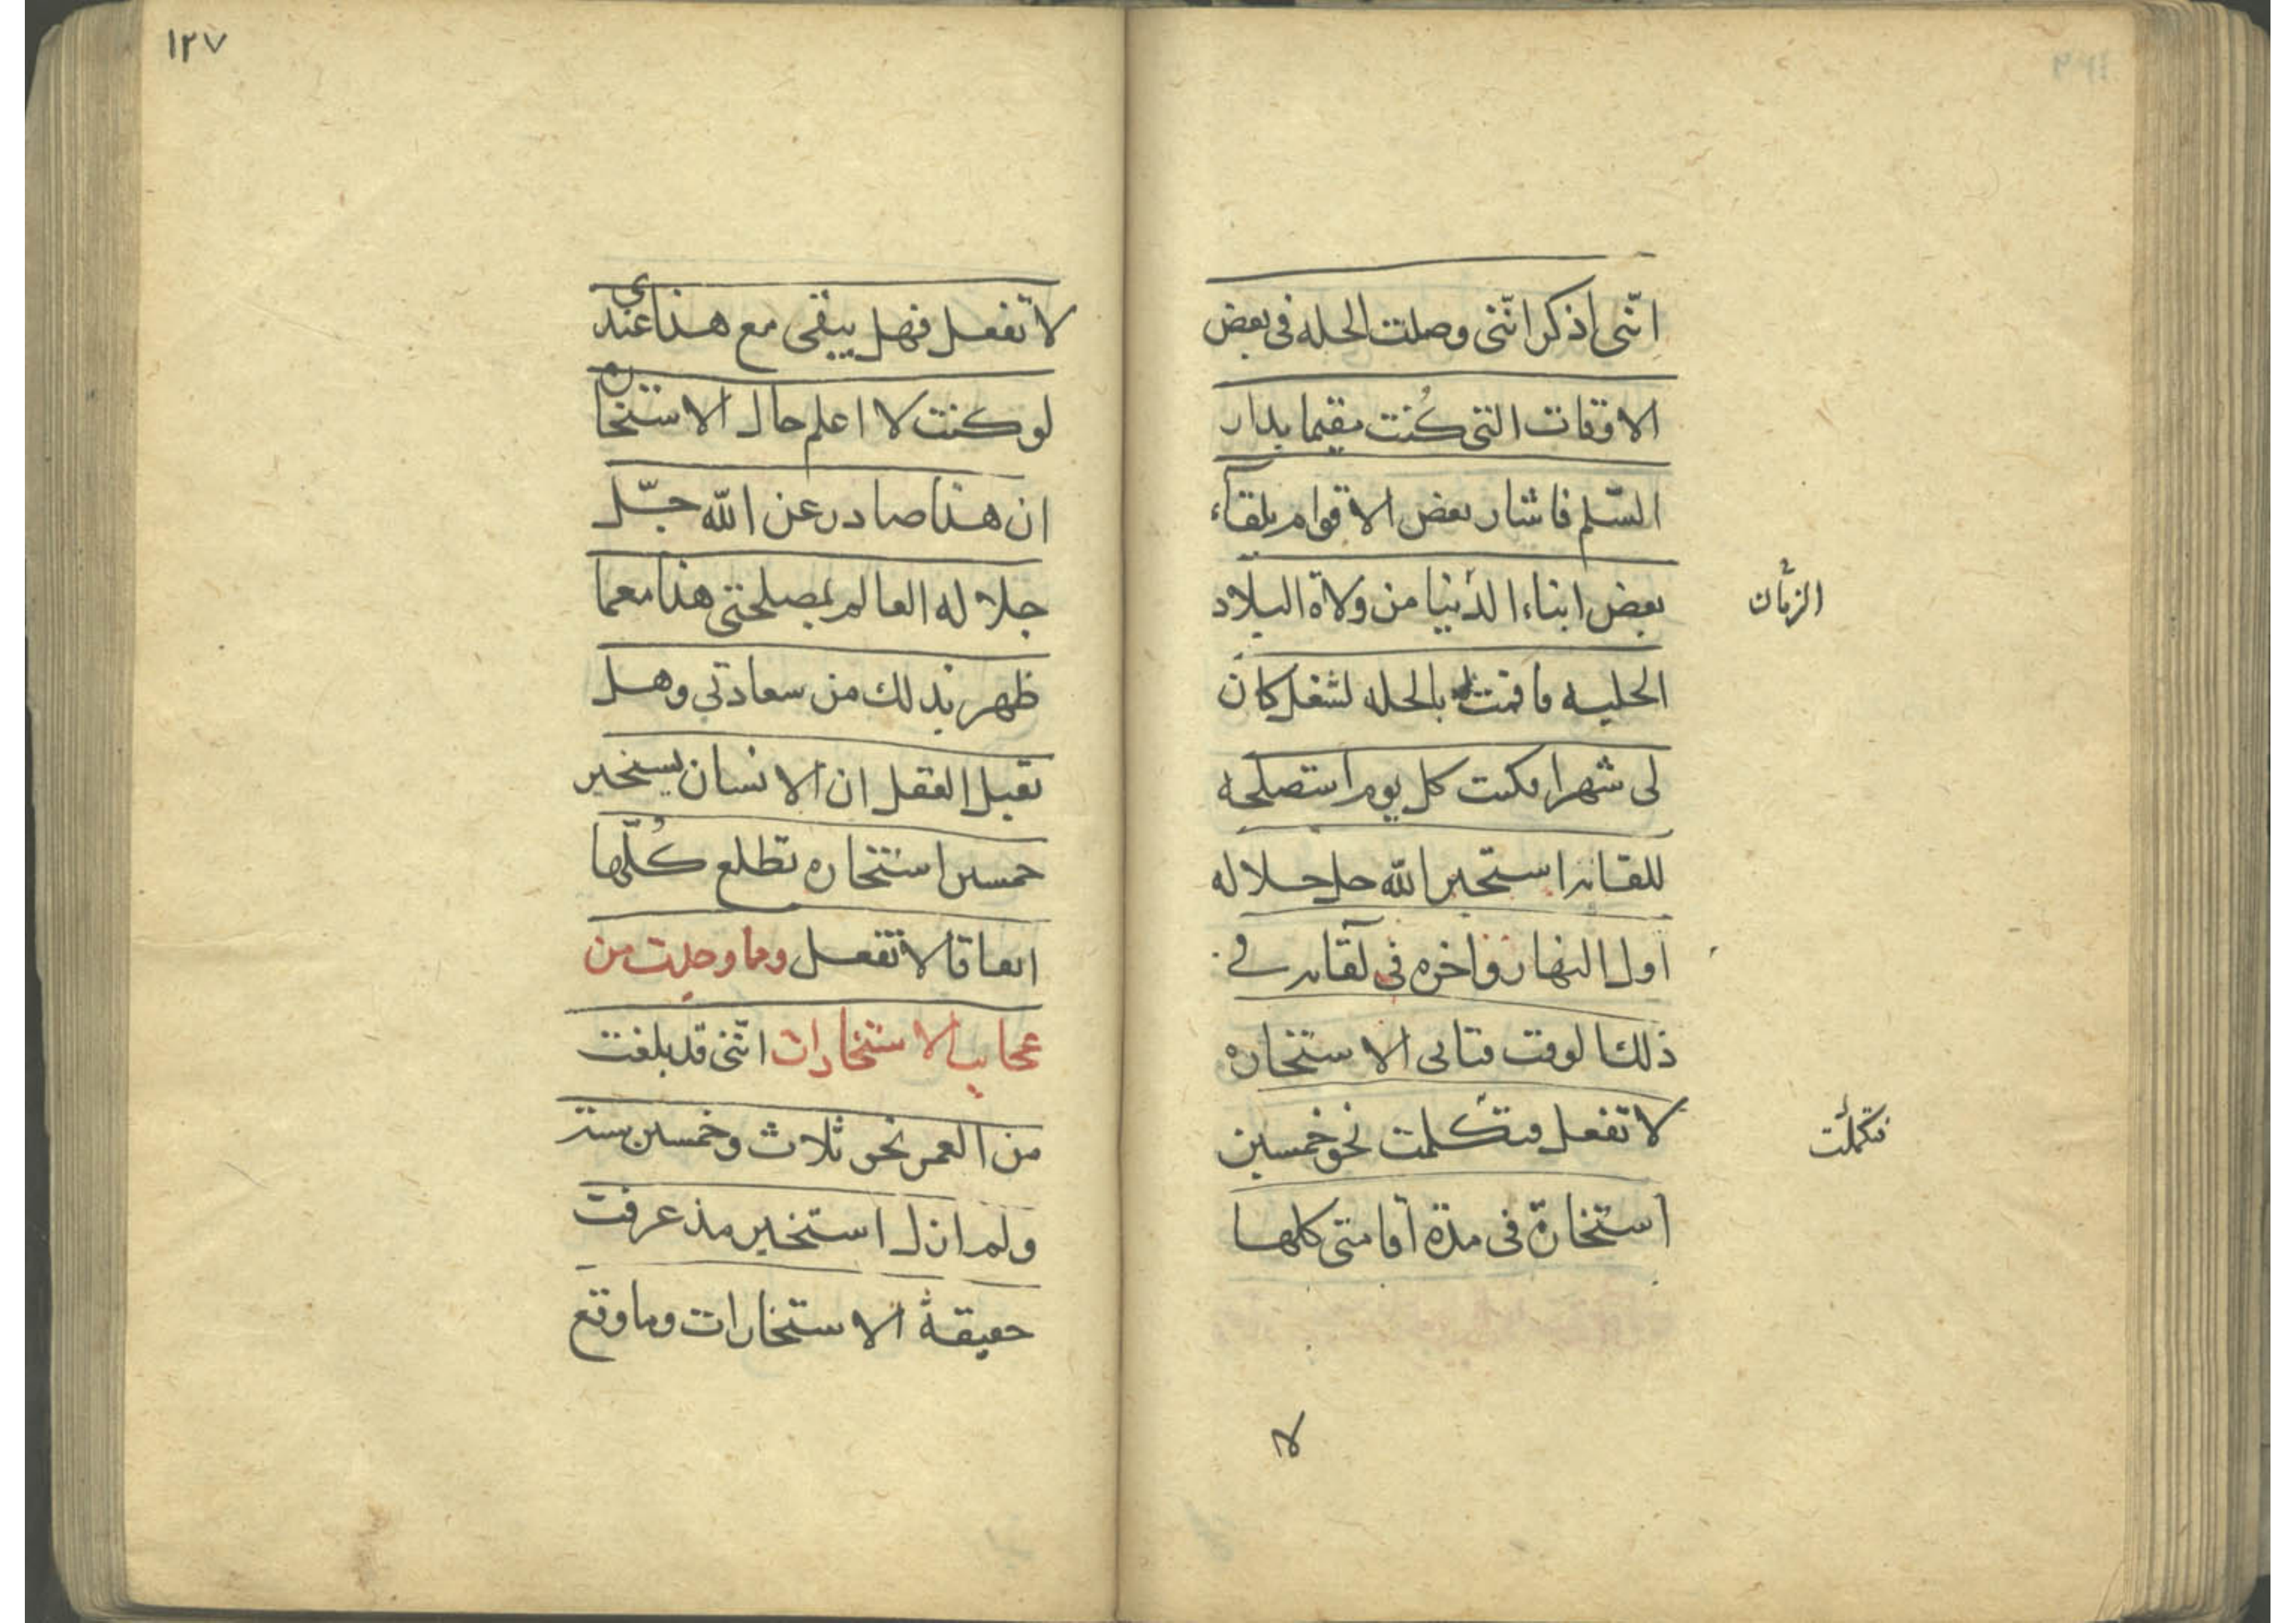 انّنى اذكر انّنى وصلت الحله فى بعض
الاوقات التى كُنت مقيما بدار
السّلم فاشار بعض الاقوام بلقاء
بعض ابناء الدّنيا من ولاة البلاد
الزمان
الحليه فاقمت بالحله لشغل كان
لى شهرا فكنت كل يوم استصلحه
للقائه استخير الله جل جلاله
اول النهار واخره فى لقائه فى
ذلك الوقت فتاتى الاستخاره
لا تفعل فتكلمت نحو خمسين
فتكملت
استخارة فى مدة اقامتى كلها
لا
١٢٧
لا تفعل فهل يبقى مع هذا عندى
لو كنت لا اعلم حال الاستخاره
ان هذا صادر عن الله جلّ
جلاله العالم بمصلحتى هذا مع ما
ظهر بذلك من سعادتى وهل
يقبل العقل ان الانسان يستخير
خمسين استخاره تطلع كُلّها
اتفاقا لا تفعل ومما وجدت من
عجايب الاستخارات انّنى قد بلغت
من العمر نحو ثلاث وخمسين سنة
ولم ازل استخير مذ عرفت
حقيقة الاستخارات وما وقع